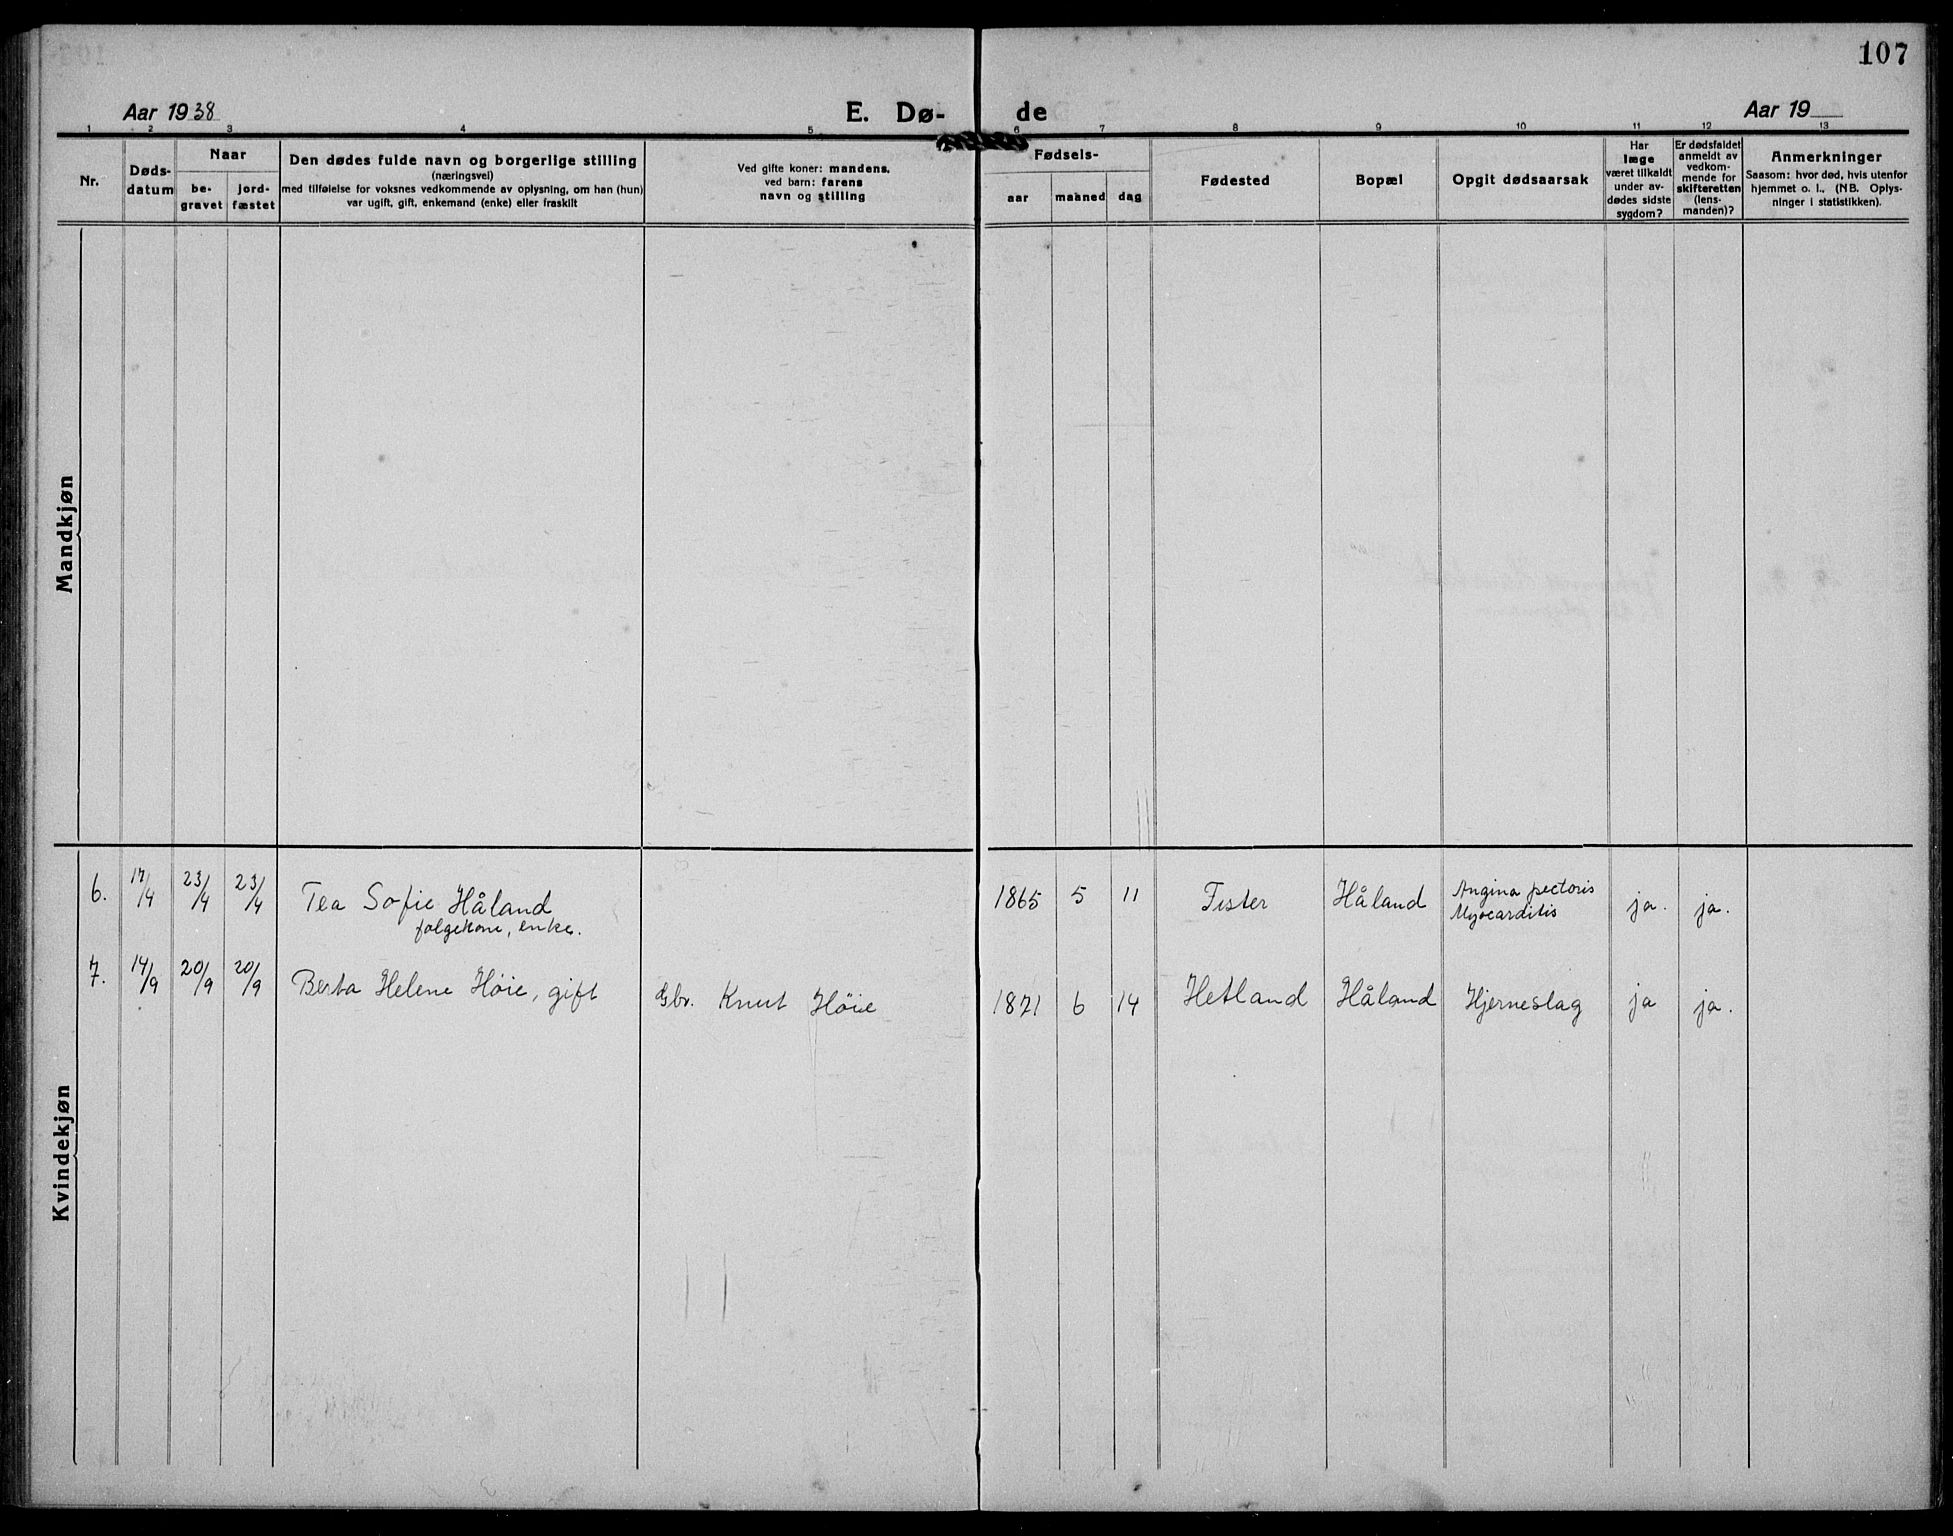 107
Aar 1938 E. Dø- de Aar 19
1 2 3 4 5 6 7 8 9 10 11 12 13
Nr.
Døds-
datum
Naar
be-
gravet
jord-
fæstet
Den dødes fulde navn og borgerlige stilling
(næringsvei)
med tilføielse for voksnes vedkommende av oplysning, om han (hun)
var ugift, gift, enkemand (enke) eller fraskilt
Ved gifte koner: mandens.
ved barn: farens
navn og stilling
Fødsels-
aar
maaned
dag
Fødested
Bopæl
Opgit dødsaarsak
Har
læge
været tilkaldt
under av-
dødes sidste
sygdom?
Er dødsfaldet
anmeldt av
vedkom-
mende for
skifteretten
(lens-
manden)?
Anmerkninger
Saasom: hvor død, hvis utenfor
hjemmet o. l., (NB. Oplys-
ninger i statistikken).
Mandkjøn
Kvindekjøn
6. 17/4 23/4 23/4 Tea Sofie Håland 1865 5 11 Fister Håland Angina pectoris ja. ja.
folgekone, enke. Myocarditis
7. 14/9 20/9 20/9 Berta Helene Høie, gift Gbr. Knut Høie 1871 6 14 Hetland Håland Hjerneslag ja ja.